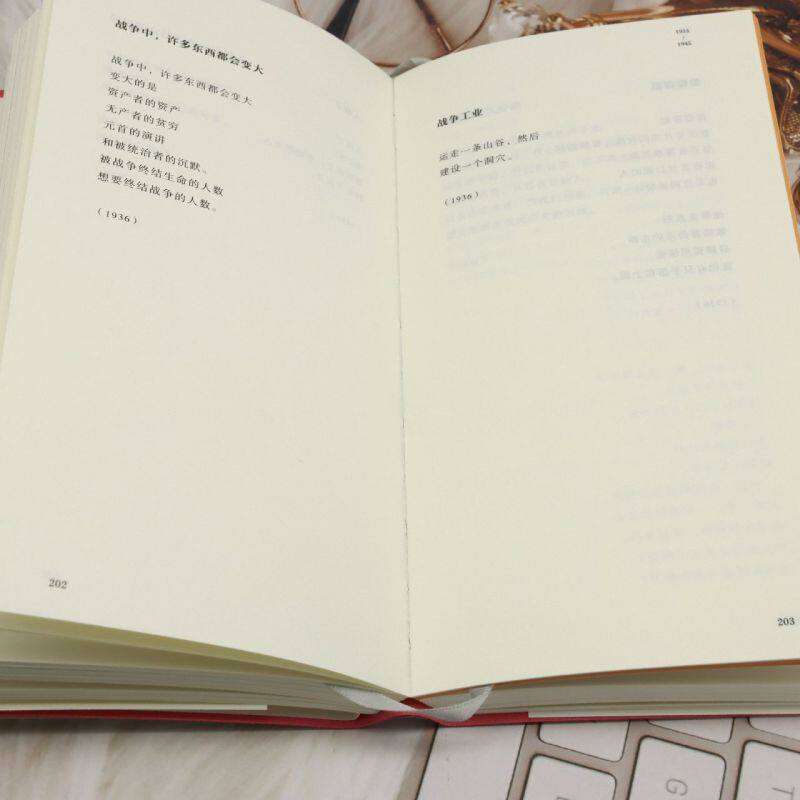 战争中，许多东西都会变大
战争中，许多东西都会变大
变大的是
资产者的资产
无产者的贫穷
元首的演讲
和被统治者的沉默。
被战争终结生命的人数
想要终结战争的人数。
（1936）
202
1935
/
1945
战争工业
运走一条山谷，然后
建设一个洞穴。
（1936）
203
T
G